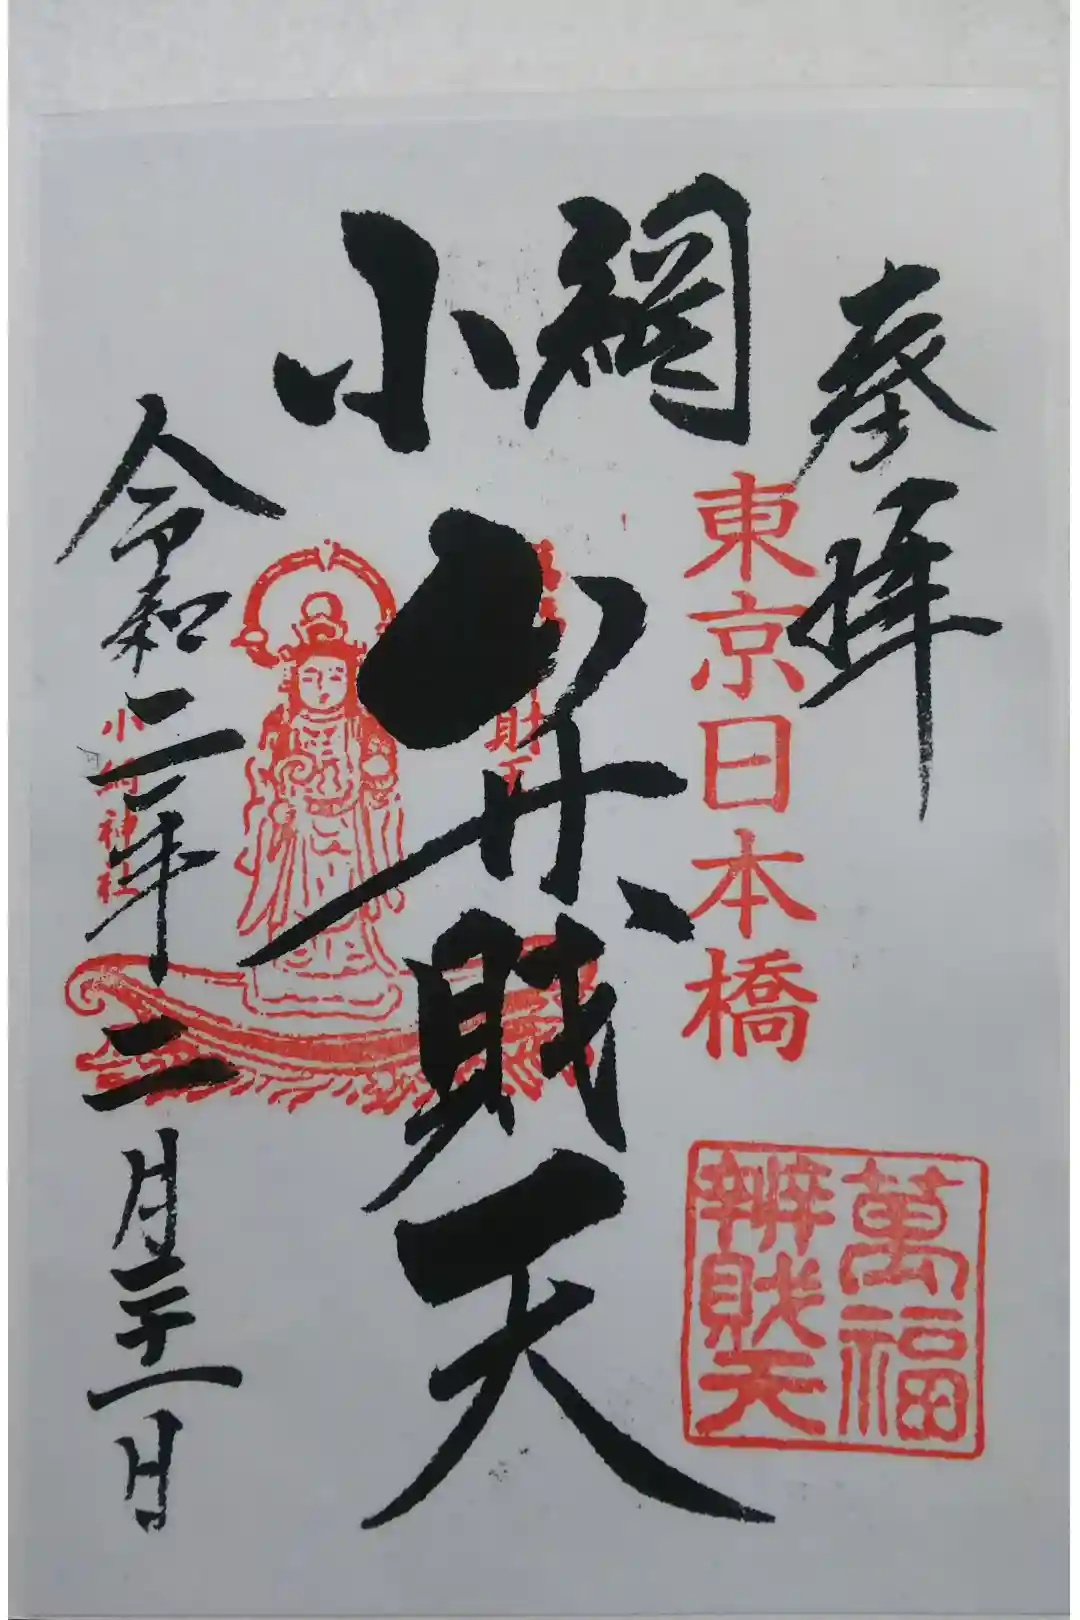 奉拝
東京日本橋
萬福
辨財天
小網
弁財天
小網神社
令和二年二月二十一日